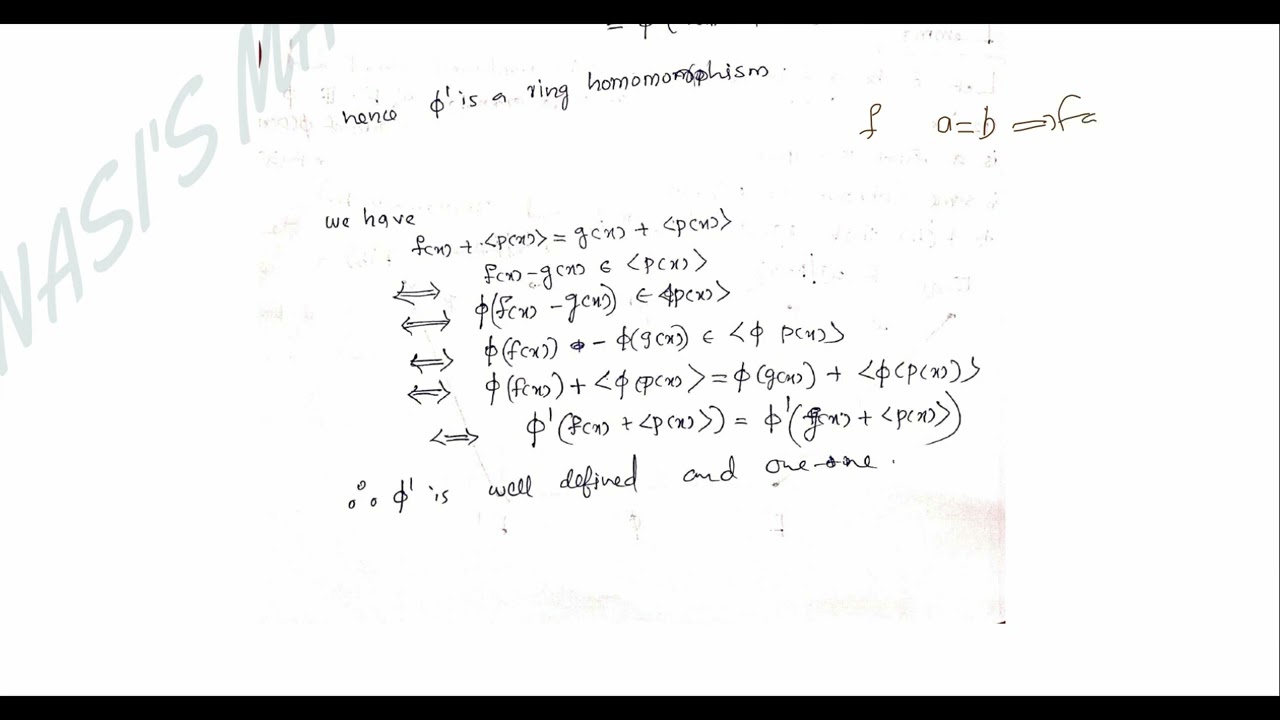 hence ϕ' is a ring homomorphism.
f a=b ⟹ fa
we have
f(x) + <p(x)> = g(x) + <p(x)>
⟺ f(x) - g(x) ∈ <p(x)>
⟺ ϕ(f(x) - g(x)) ∈ <ϕp(x)>
⟺ ϕ(f(x)) - ϕ(g(x)) ∈ <ϕ p(x)>
⟺ ϕ(f(x)) + <ϕ(p(x)> = ϕ(g(x)) + <ϕ(p(x))>
⟺ ϕ'(f(x) + <p(x)>) = ϕ'(g(x) + <p(x)>)
∴ ϕ' is well defined and one-one.
NASI'S MA